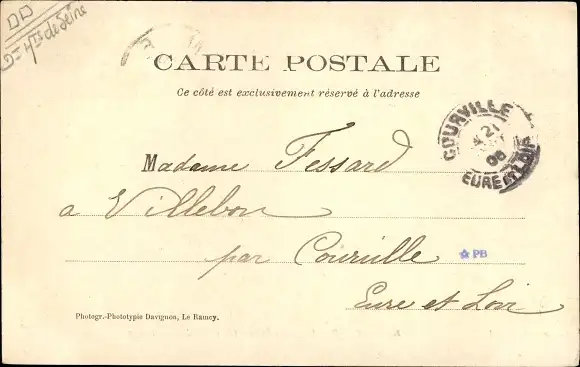 Hts de Seine
CARTE POSTALE
Ce côté est exclusivement réservé à l'adresse
COURVILLE
21
06
EURE ET LOIR
Madame Fessard
a Villebon
par Courville
PB
Eure et Loir
Photogr.-Phototypie Davignon, Le Raincy.